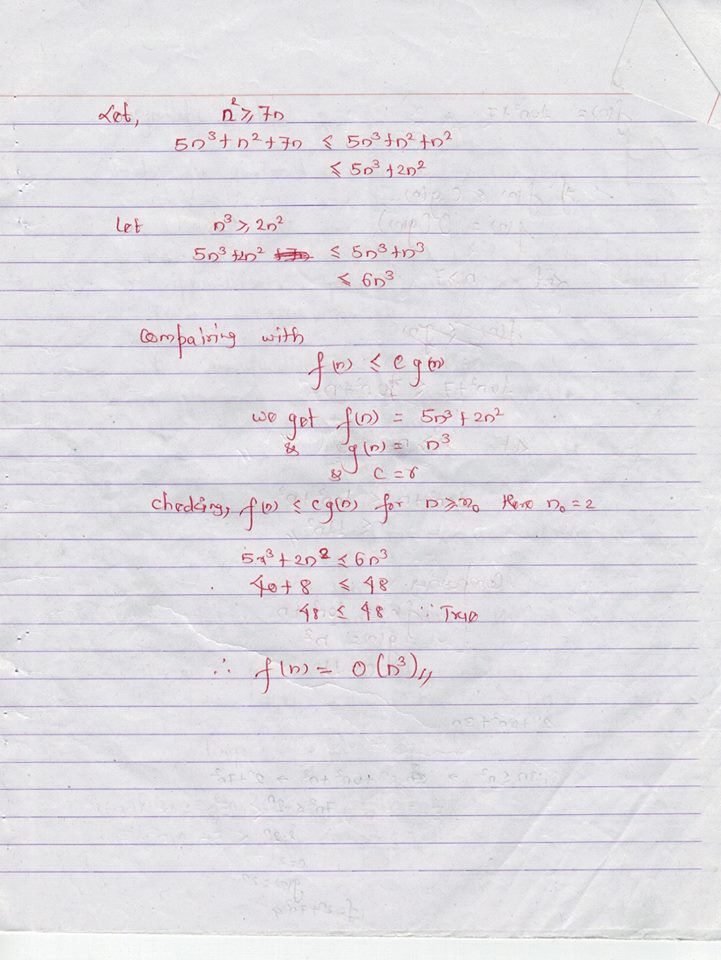 Let, n² ≥ 7n
5n³ + n² + 7n ≤ 5n³ + n² + n²
≤ 5n³ + 2n²
Let n³ ≥ 2n²
5n³ + 2n² ≤ 5n³ + n³
≤ 6n³
Compairing with
f(n) ≤ c g(n)
we get f(n) = 5n³ + 2n²
& g(n) = n³
& c = 6
checking, f(n) ≤ cg(n) for n ≥ n₀ Here n₀ = 2
5n³ + 2n² ≤ 6n³
40 + 8 ≤ 48
48 ≤ 48 ∵ True
∴ f(n) = O(n³)